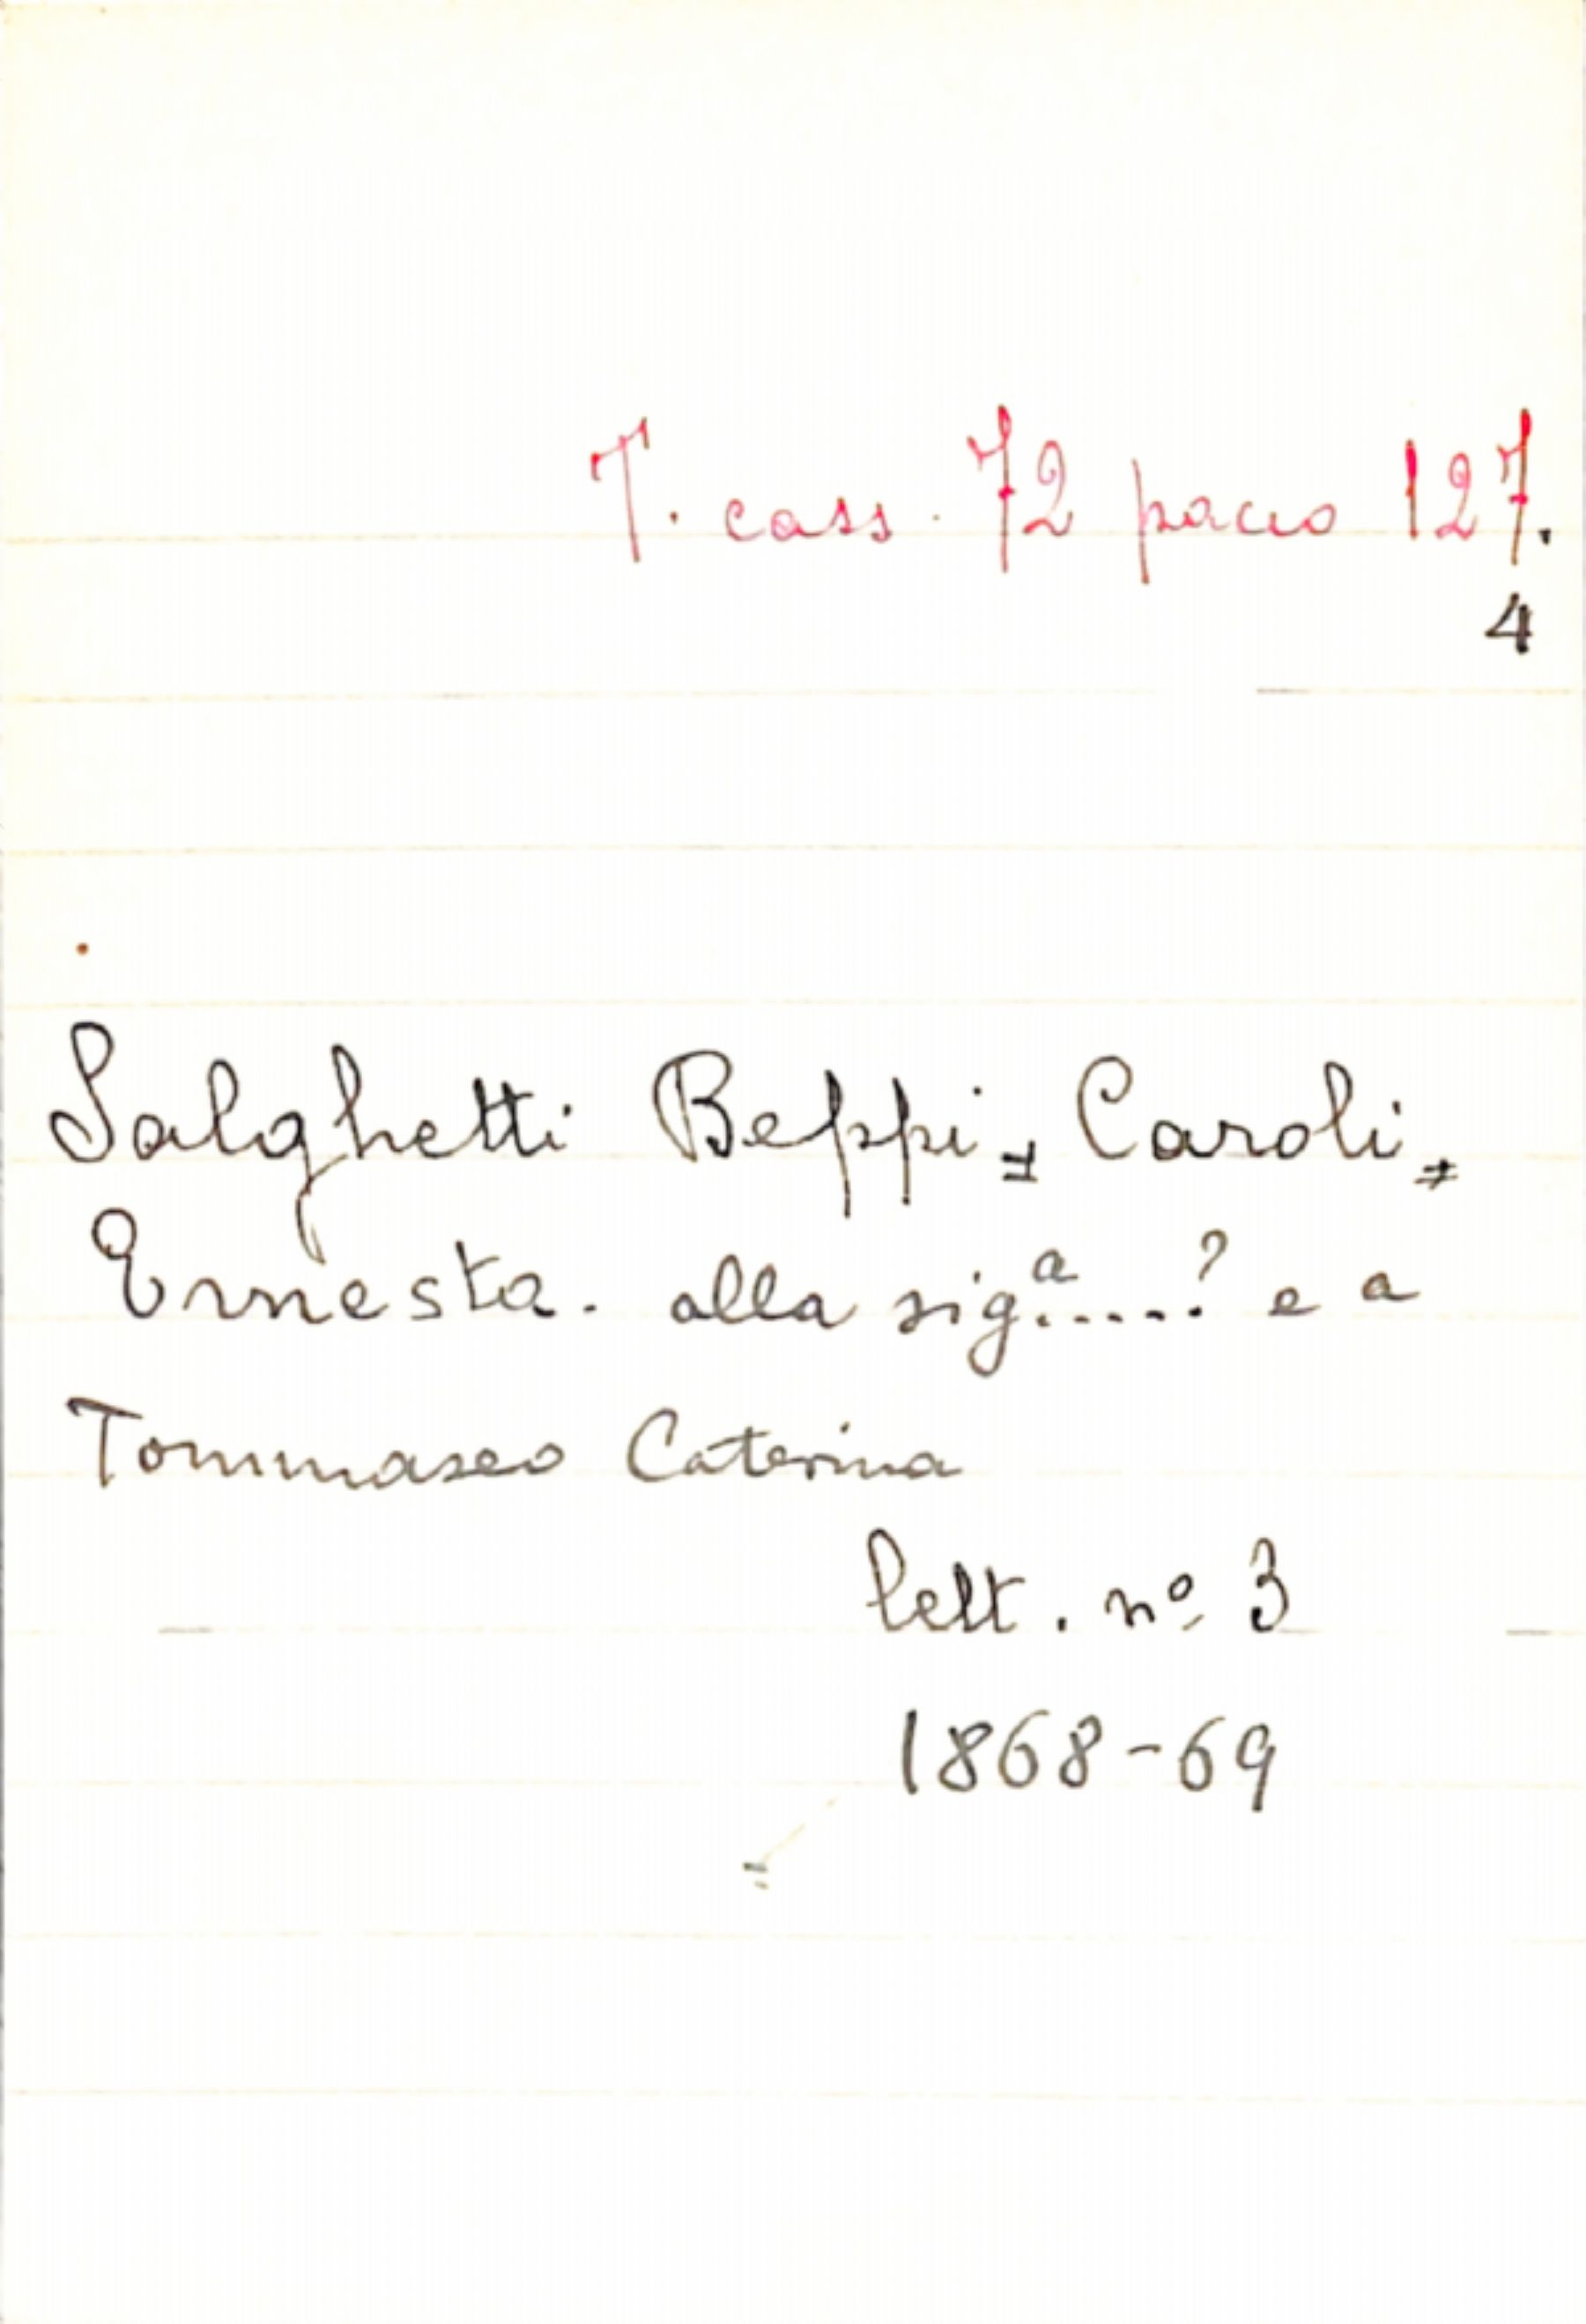 T. cass. 72 pacco 127.
4
Salghetti Beppi, Caroli,
Ernesta. alla sigª.....? e a
Tommaseo Caterina
lett. nº 3
1868-69